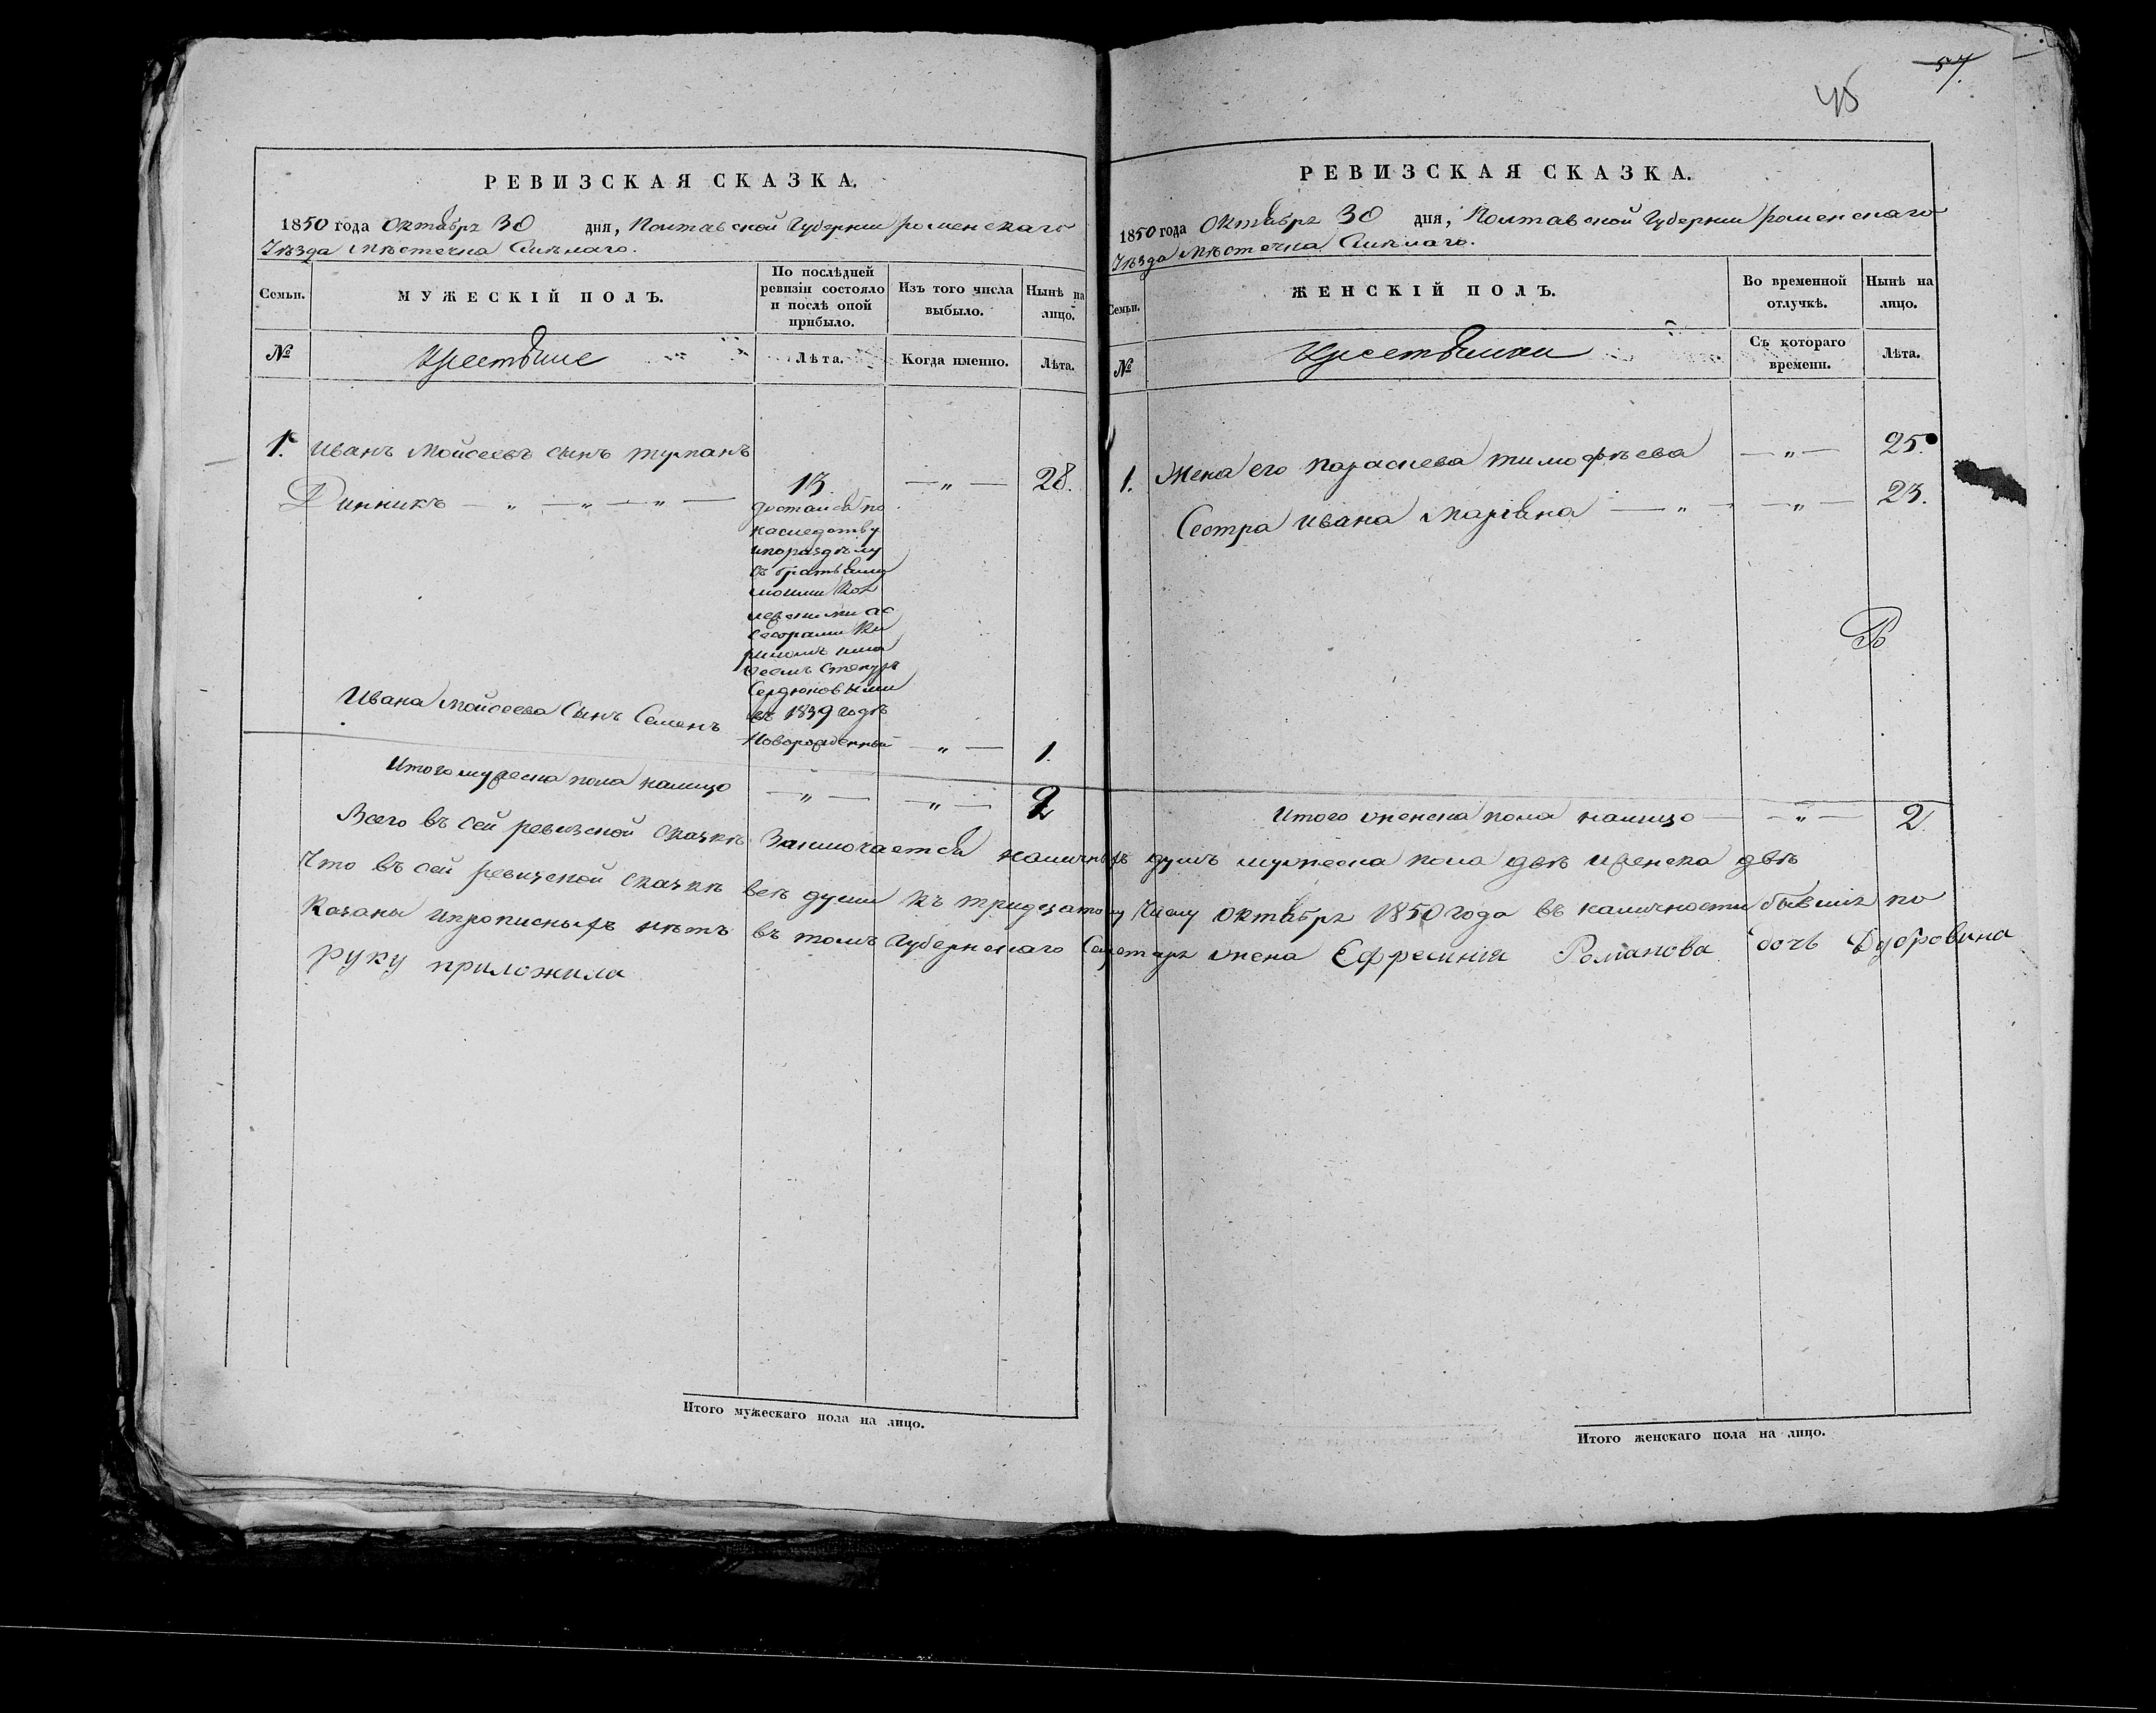 57.
45
РЕВИЗСКАЯ СКАЗКА.
1850 года Октября 30 дня, Полтавской Губернии роменскаго
Уѣзда Мѣстечка Смѣлаго.
Семьи.
МУЖЕСКІЙ ПОЛЪ.
По послѣдней ревизіи состояло и послѣ оной прибыло.
Изъ того числа выбыло.
Нынѣ на лицо.
№
Крестьяне
Лѣта.
Когда именно.
Лѣта.
1. Иванъ Мойсеевъ сынъ
Динникъ — „ — „ — „ — 13. — „ — 28.
достался по
наследству
ипораздѣлу
съ братьями
моими Кол
лежскими ас
сесорами
Сердюковыми
въ 1839 годѣ
Ивана Мойсеева Сынъ Семенъ Новорожденный — „ — 1.
Итого мужеска пола налицо — „ — — „ — 2
РЕВИЗСКАЯ СКАЗКА.
1850 года Октября 30 дня, Полтавской Губернии роменскаго
Уѣзда Мѣстечка Смѣлаго.
Семьи.
ЖЕНСКІЙ ПОЛЪ.
Во временной отлучкѣ.
Нынѣ на лицо.
№
Крестьянки
Съ котораго времени.
Лѣта.
1. Жена его параскева тимофѣева — „ — 25.
Сестра ивана Марьяна — „ — — „ — 23.
Итого женска пола налицо — — „ — 2.
Всего въ сей ревизской сказкѣ Заключается наличныхъ душъ мужеска пола двѣ иженска двѣ
Что въ сей ревизской сказкѣ всѣ души къ тридцатому Числу октября 1850 года въ наличности бывшия по
Казаны ипрописныхъ нѣтъ въ томъ Губернскаго Секретаря жена Ефросиния Романова дочь Дубровина
руку приложила
Итого мужескаго пола на лицо.
Итого женскаго пола на лицо.